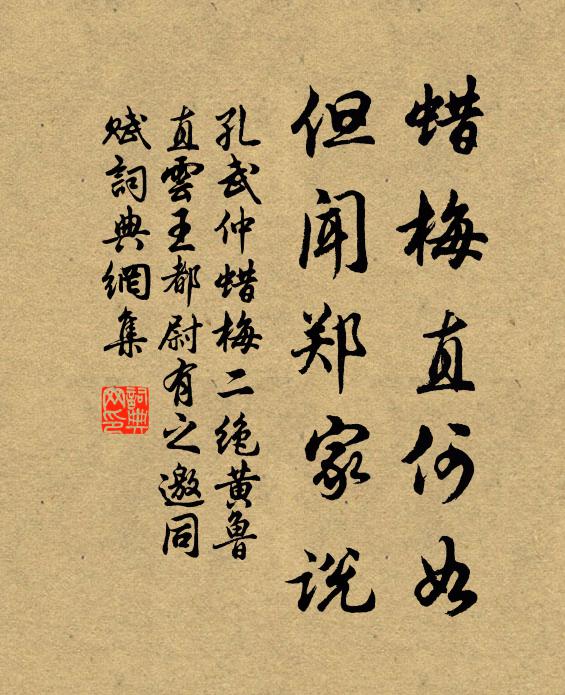 蜡梅直何如
但闻郑家说
孔武仲蜡梅二绝黄鲁
直雲王都尉有之邀同
赋詞典網集
詞典
网印